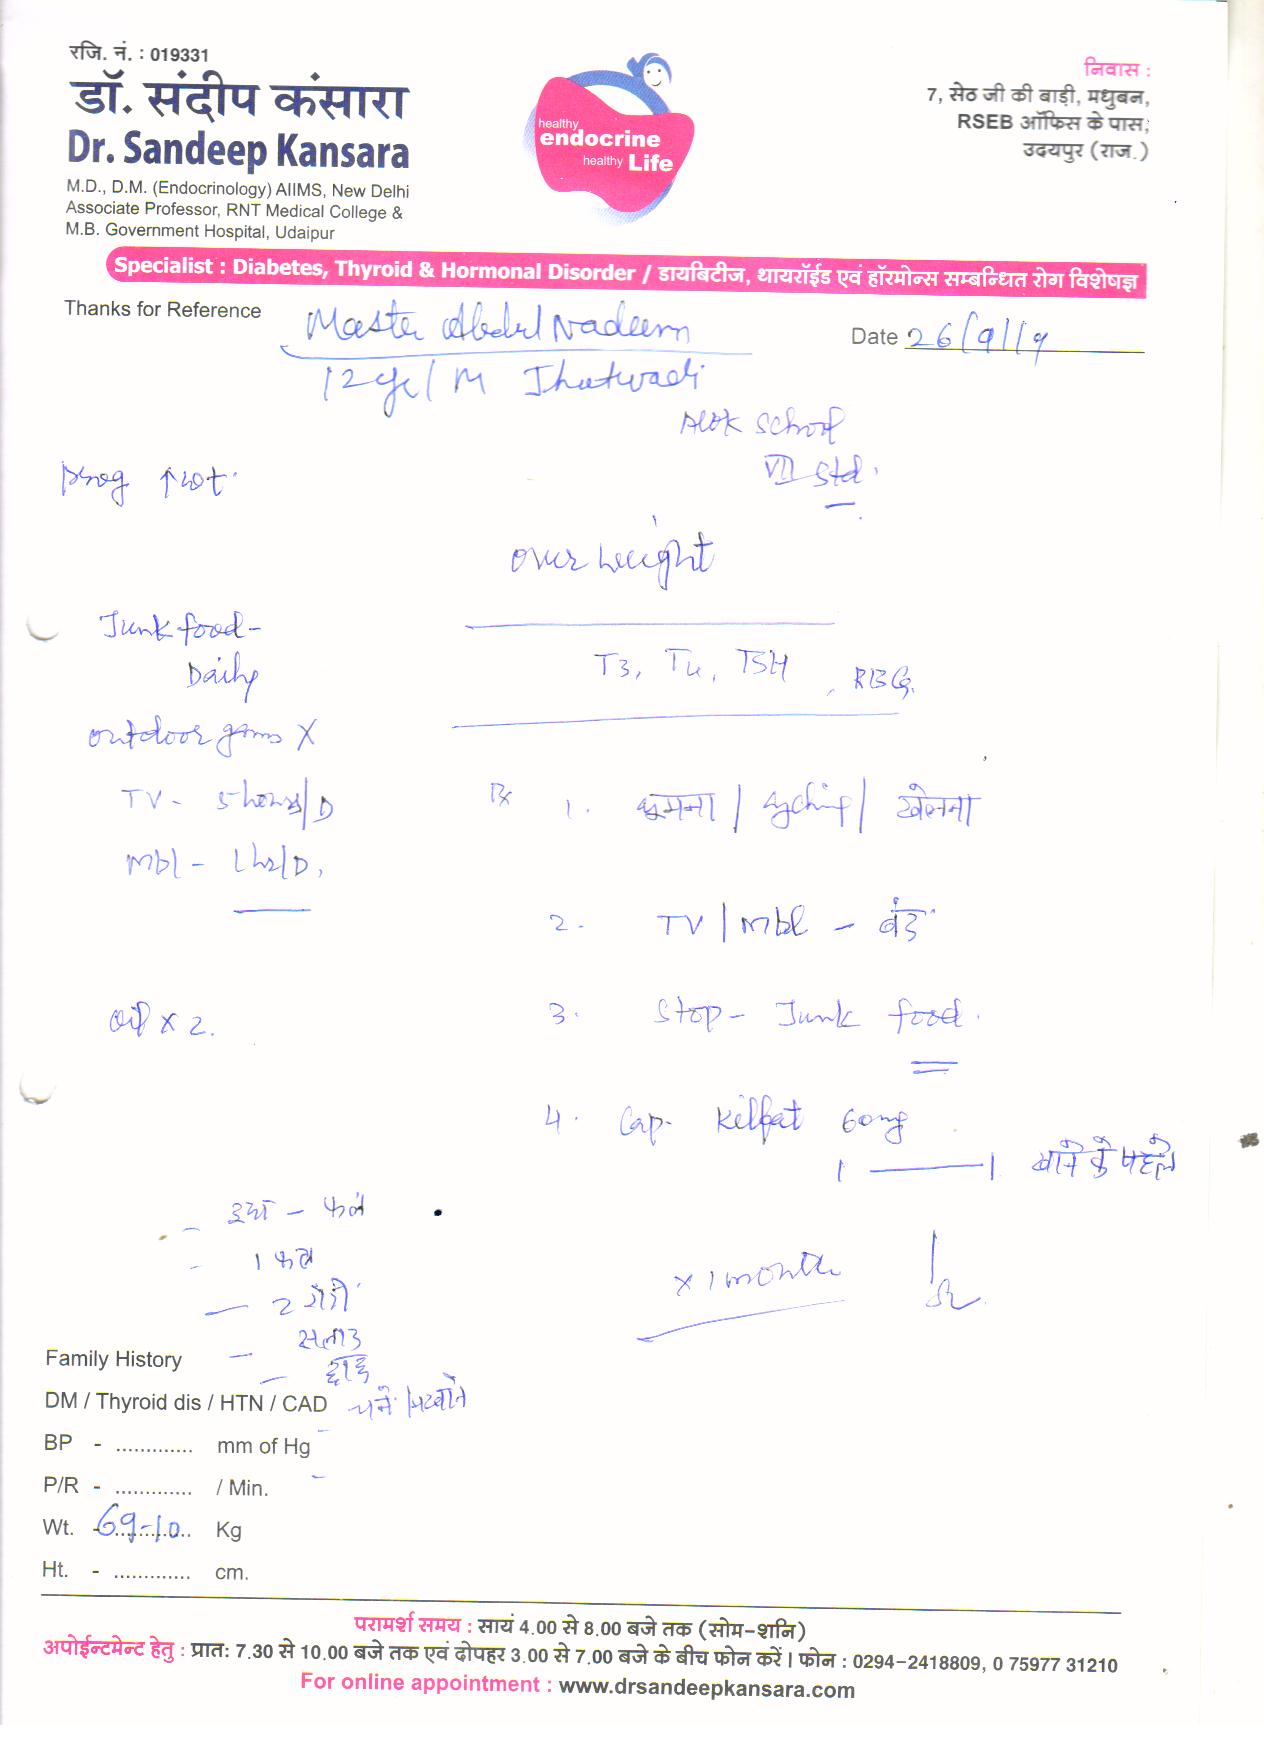 रजि. नं. : 019331
डॉ. संदीप कंसारा
Dr. Sandeep Kansara
M.D., D.M. (Endocrinology) AIIMS, New Delhi
Associate Professor, RNT Medical College &
M.B. Government Hospital, Udaipur
healthy
endocrine
healthy Life
निवास :
7, सेठ जी की बाड़ी, मधुबन,
RSEB ऑफिस के पास,
उदयपुर (राज.)
Specialist : Diabetes, Thyroid & Hormonal Disorder / डायबिटीज, थायरॉईड एवं हॉरमोन्स सम्बन्धित रोग विशेषज्ञ
Thanks for Reference
Master Abdul Nadeem
Date 26/9/19
12yr/M
Alok School
VII Std.
prog ↑wt.
over weight
Junk food-
Daily
T3, T4, TSH, RBG.
outdoor games X
TV - 5 hours/D
Mbl - 1 hr/D,
Rx 1. घूमना / cycling / खेलना
2. TV / Mbl - बंद
oil x 2.
3. Stop - Junk food.
4. Cap. Kilfat 60mg
1 — 1 खाने के पहले
x 1 month
1 फल
सलाद
Family History
DM / Thyroid dis / HTN / CAD
BP - ............. mm of Hg
P/R - ............. / Min.
Wt. - 69-10 Kg
Ht. - ............. cm.
परामर्श समय : सायं 4.00 से 8.00 बजे तक (सोम-शनि)
अपोईन्टमेन्ट हेतु : प्रात: 7.30 से 10.00 बजे तक एवं दोपहर 3.00 से 7.00 बजे के बीच फोन करें। फोन : 0294-2418809, 0 75977 31210
For online appointment : www.drsandeepkansara.com